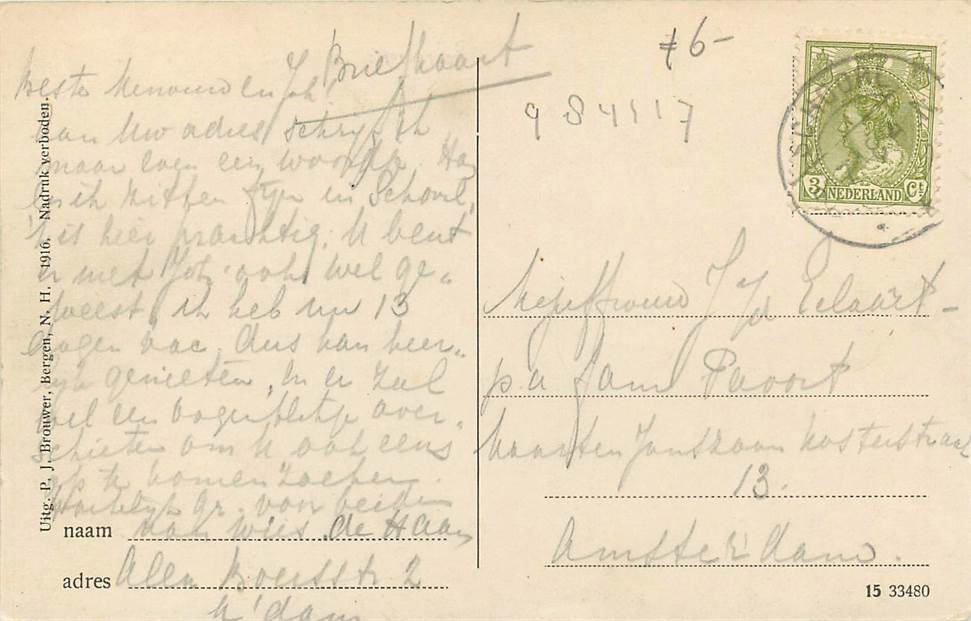 Briefkaart
76-
984117
Beste Mevrouw en Joh.
aan Uw adres schrijf ik
maar even een woordje. Hoe
en ik zitten fijn in Schoorl,
't is hier prachtig. U bent
er met Joh. ook wel ge-
weest. ik heb nu 13
dagen vac. dus kan heer-
lijk genieten, en er zal
wel een oogenblikje over-
schieten om U ook eens
op te komen zoeken.
Hartelijk gr. voor beiden
van Wies de Haan
SCHOORL
3 NEDERLAND Ct
Mejuffrouw
p a fam
Maarten Janszoon Kosterstraat
13.
Amsterdam.
naam
adres
2
A'dam
Uitg. P. J. Brouwer, Bergen, N. H. 1916. Nadruk verboden.
15 33480